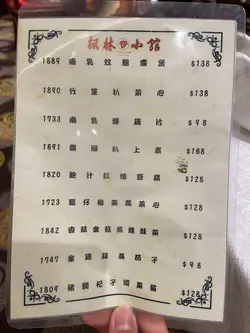 楓林小館
1889 南乳炆粗齋煲 $138
1890 竹笙扒菜心 $128
1733 南乳爆藕片 $98
1891 扒上素 $168
1820 鮑汁紅燒豆腐 $128
1723 菜心 $128
1842 金菇娃娃菜 $128
1747 金銀蒜茄子 $98
1809 杞子浸菜苗 $128